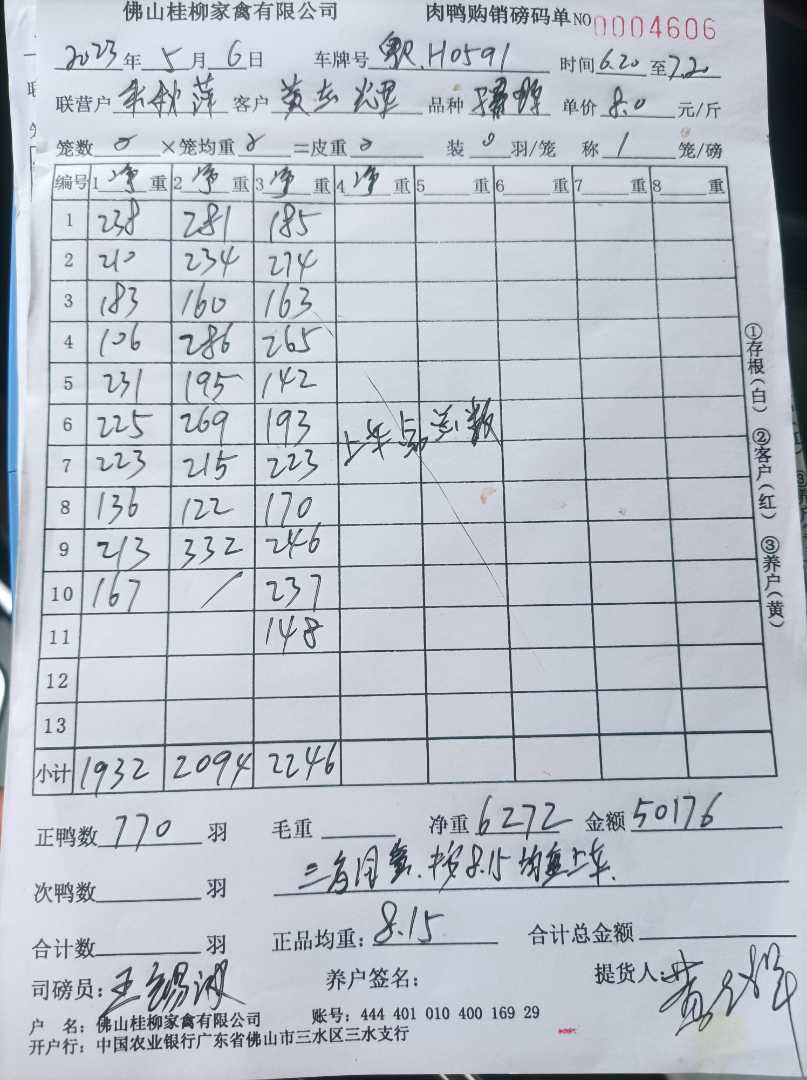 佛山桂柳家禽有限公司 肉鸭购销磅码单 NO 0004606
2023年5月6日 车牌号 粤R.H0591 时间6.20至7.20
联营户 萍 客户 黄志 品种 单价 8.0 元/斤
笼数 0 ×笼均重 0 =皮重 0 装 0 羽/笼 称 1 笼/磅
编号 1 净 重 2 净 重 3 净 重 4 净 重 5 重 6 重 7 重 8 重
1 238 281 185
2 210 234 274
3 183 160 163
4 106 286 265
5 231 195 142
6 225 269 193
7 223 215 223
8 136 122 170
9 213 332 246
10 167 / 237
11 148
12
13
上车 数
小计 1932 2094 2246
正鸭数 770 羽 毛重 净重 6272 金额 50176
次鸭数 羽 三角 8.15 均重上车.
合计数 羽 正品均重: 8.15 合计总金额
司磅员: 王锡波 养户签名: 提货人: 黄
户 名: 佛山桂柳家禽有限公司 账号: 444 401 010 400 169 29
开户行: 中国农业银行广东省佛山市三水区三水支行
①存根(白) ②客户(红) ③养户(黄)